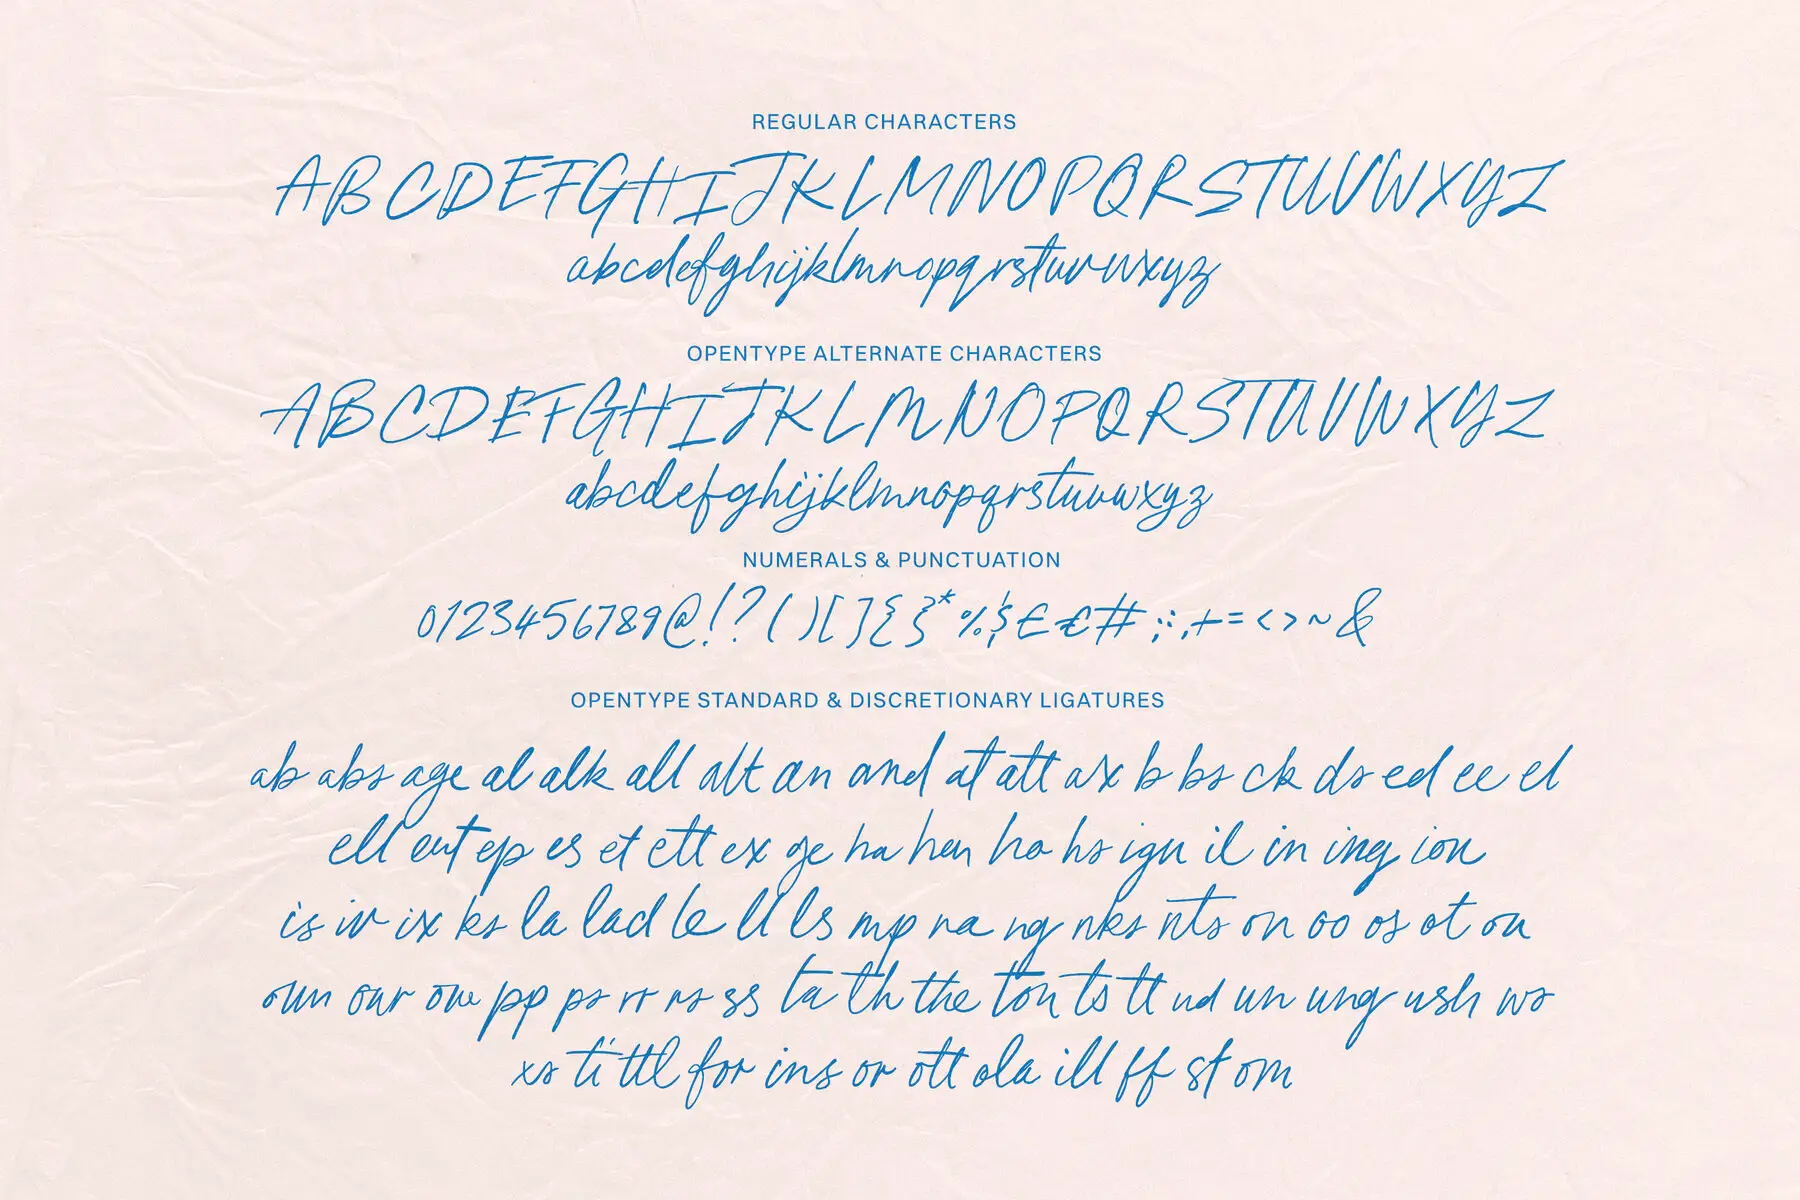 REGULAR CHARACTERS
ABCDEFGHIJKLMNOPQRSTUVWXYZ
abcdefghijklmnopqrstuvwxyz
OPENTYPE ALTERNATE CHARACTERS
ABCDEFGHIJKLMNOPQRSTUVWXYZ
abcdefghijklmnopqrstuvwxyz
NUMERALS & PUNCTUATION
0123456789@!?()[]{}*%$£€#;:,+=<>~&
OPENTYPE STANDARD & DISCRETIONARY LIGATURES
ab abs age al alk all alt an and at att ax b bs ck ds ed ee el
ell ent ep es et ett ex ge ha hen ho hs ign il in ing ion
is iv ix ks la lad le ll ls mp na ng nks nts on oo os ot ou
oun our ow pp ps rr rs ss ta th the ton ts tt ud un ung ush ws
xs ti ttl for ins or ott ola ill ff st om